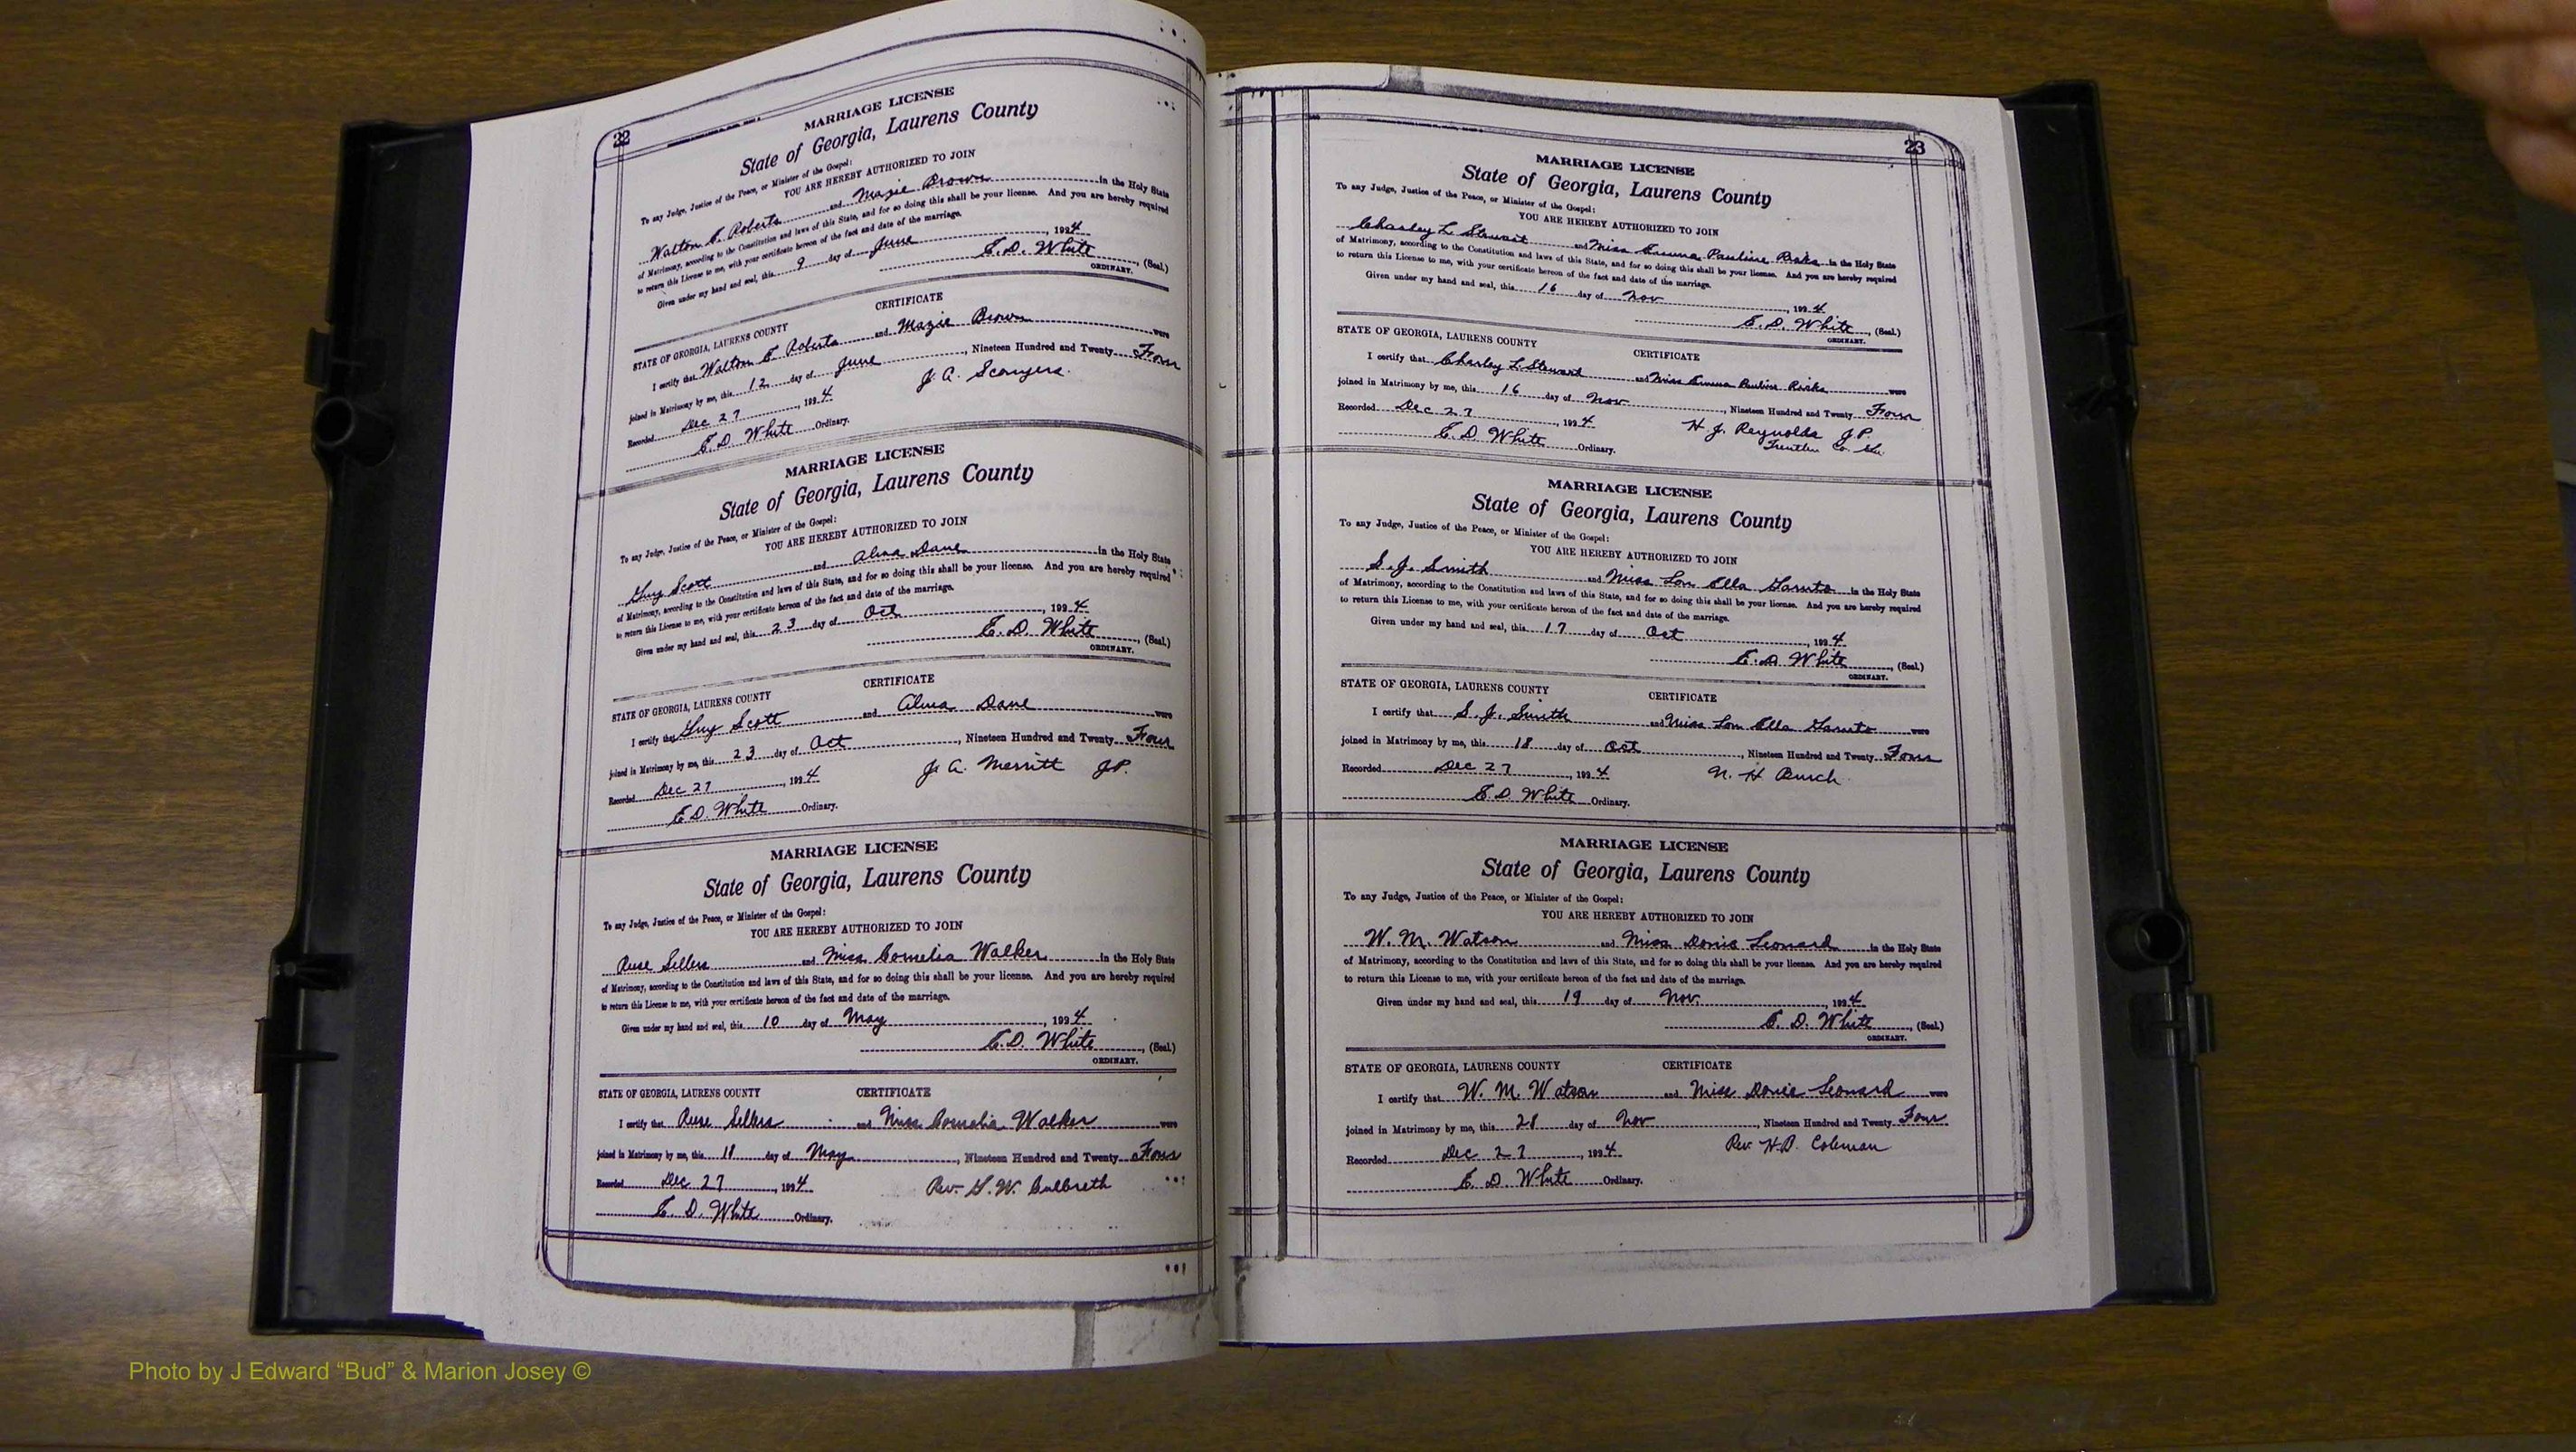 22
MARRIAGE LICENSE
State of Georgia, Laurens County
To any Judge, Justice of the Peace, or Minister of the Gospel:
YOU ARE HEREBY AUTHORIZED TO JOIN
Walton F. Roberts and Mazie Brown in the Holy State
of Matrimony, according to the Constitution and laws of this State, and for so doing this shall be your license. And you are hereby required
to return this License to me, with your certificate hereon of the fact and date of the marriage.
Given under my hand and seal, this 9 day of June, 1924
E.D. White, (Seal.)
ORDINARY.
STATE OF GEORGIA, LAURENS COUNTY CERTIFICATE
I certify that Walton F Roberts and Mazie Brown were
joined in Matrimony by me, this 12 day of June, Nineteen Hundred and Twenty Four
Recorded Dec 27, 1924 J. A. Scongers.
E. D. White Ordinary.
MARRIAGE LICENSE
State of Georgia, Laurens County
To any Judge, Justice of the Peace, or Minister of the Gospel:
YOU ARE HEREBY AUTHORIZED TO JOIN
Guy Scott and Alma Dane in the Holy State
of Matrimony, according to the Constitution and laws of this State, and for so doing this shall be your license. And you are hereby required
to return this License to me, with your certificate hereon of the fact and date of the marriage.
Given under my hand and seal, this 23 day of Oct, 1924
E. D. White, (Seal.)
ORDINARY.
STATE OF GEORGIA, LAURENS COUNTY CERTIFICATE
I certify that Guy Scott and Alma Dane were
joined in Matrimony by me, this 23 day of Oct, Nineteen Hundred and Twenty Four
Recorded Dec 27, 1924 J. A. Merritt J.P.
E D. White Ordinary.
MARRIAGE LICENSE
State of Georgia, Laurens County
To any Judge, Justice of the Peace, or Minister of the Gospel:
YOU ARE HEREBY AUTHORIZED TO JOIN
Ruse Sellers and Miss Cornelia Walker in the Holy State
of Matrimony, according to the Constitution and laws of this State, and for so doing this shall be your license. And you are hereby required
to return this License to me, with your certificate hereon of the fact and date of the marriage.
Given under my hand and seal, this 10 day of May, 1924
E.D. White, (Seal.)
ORDINARY.
STATE OF GEORGIA, LAURENS COUNTY CERTIFICATE
I certify that Ruse Sellers and Miss Cornelia Walker were
joined in Matrimony by me, this 11 day of May, Nineteen Hundred and Twenty Four
Recorded Dec 27, 1924 Rev. G. W. Culbreth
E. D. White Ordinary.
23
MARRIAGE LICENSE
State of Georgia, Laurens County
To any Judge, Justice of the Peace, or Minister of the Gospel:
YOU ARE HEREBY AUTHORIZED TO JOIN
Charley L Stewart and Miss Emma Pauline Ricks in the Holy State
of Matrimony, according to the Constitution and laws of this State, and for so doing this shall be your license. And you are hereby required
to return this License to me, with your certificate hereon of the fact and date of the marriage.
Given under my hand and seal, this 16 day of Nov, 1924
E. D. White, (Seal.)
ORDINARY.
STATE OF GEORGIA, LAURENS COUNTY CERTIFICATE
I certify that Charley L Stewart and Miss Emma Pauline Ricks were
joined in Matrimony by me, this 16 day of Nov, Nineteen Hundred and Twenty Four
Recorded Dec 27, 1924 H J. Reynolds J.P.
E. D White Ordinary. Treutlen Co. Ga.
MARRIAGE LICENSE
State of Georgia, Laurens County
To any Judge, Justice of the Peace, or Minister of the Gospel:
YOU ARE HEREBY AUTHORIZED TO JOIN
S. J. Smith and Miss Lou Ella in the Holy State
of Matrimony, according to the Constitution and laws of this State, and for so doing this shall be your license. And you are hereby required
to return this License to me, with your certificate hereon of the fact and date of the marriage.
Given under my hand and seal, this 17 day of Oct, 1924
E. D White, (Seal.)
ORDINARY.
STATE OF GEORGIA, LAURENS COUNTY CERTIFICATE
I certify that S. J. Smith and Miss Lou Ella were
joined in Matrimony by me, this 18 day of Oct, Nineteen Hundred and Twenty Four
Recorded Dec 27, 1924 N. H Burch
E. D. White Ordinary.
MARRIAGE LICENSE
State of Georgia, Laurens County
To any Judge, Justice of the Peace, or Minister of the Gospel:
YOU ARE HEREBY AUTHORIZED TO JOIN
W. M. Watson and Miss Dovie Leonard in the Holy State
of Matrimony, according to the Constitution and laws of this State, and for so doing this shall be your license. And you are hereby required
to return this License to me, with your certificate hereon of the fact and date of the marriage.
Given under my hand and seal, this 19 day of Nov., 1924
E. D. White, (Seal.)
ORDINARY.
STATE OF GEORGIA, LAURENS COUNTY CERTIFICATE
I certify that W. M. Watson and Miss Dovie Leonard were
joined in Matrimony by me, this 21 day of Nov, Nineteen Hundred and Twenty Four
Recorded Dec 27, 1924 Rev. H. B. Coleman
E. D. White Ordinary.
Photo by J Edward “Bud” & Marion Josey ©